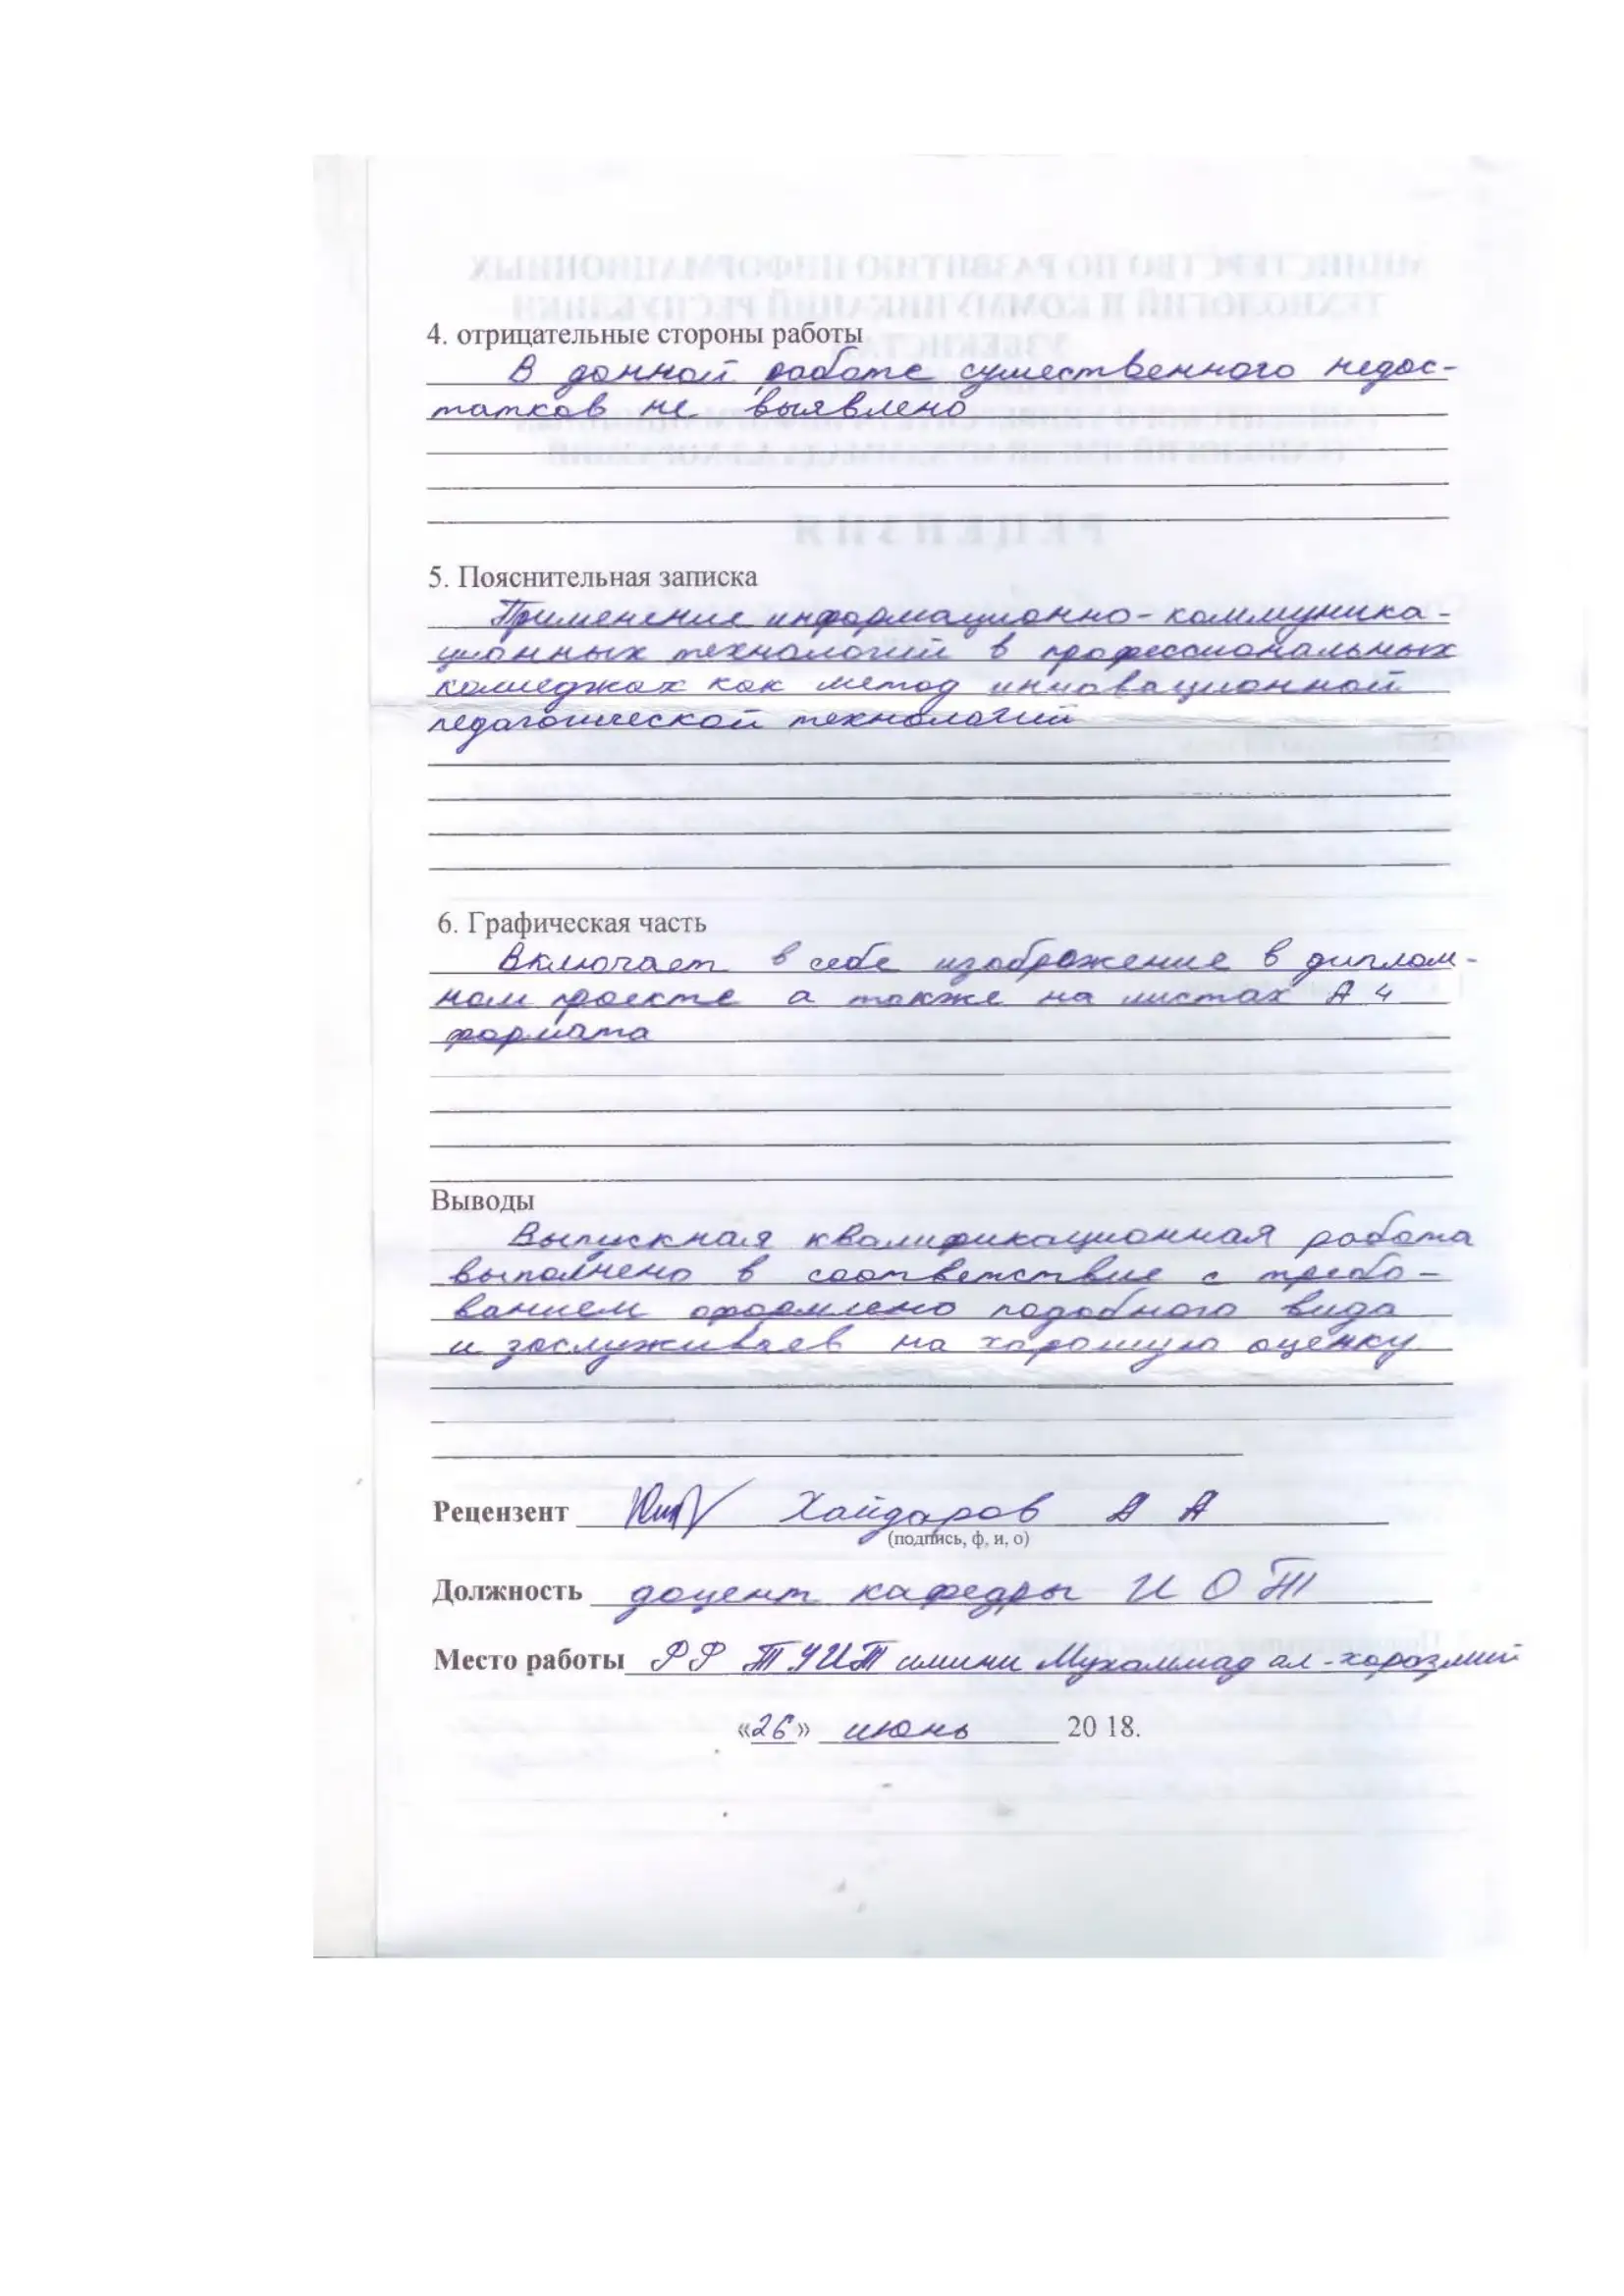 4. отрицательные стороны работы
В данной работе существенного недос-
татков не выявлено
5. Пояснительная записка
Применение информационно-коммуника-
ционных технологий в профессиональных
колледжах как метод инновационной
педагогической технологий
6. Графическая часть
Включает в себе изображение в диплом-
ном проекте а также на листах А 4
формата
Выводы
Выпускная квалификационная работа
выполнено в соответствие с требо-
ванием оформлено подобного вида
и заслуживаев на хорошую оценку
Рецензент Хайдаров А А
(подпись, ф, и, о)
Должность доцент кафедры И О Т
Место работы ФФ ТУИТ имини Мухаммад ал-хоразмий
«26» июнь 20 18.